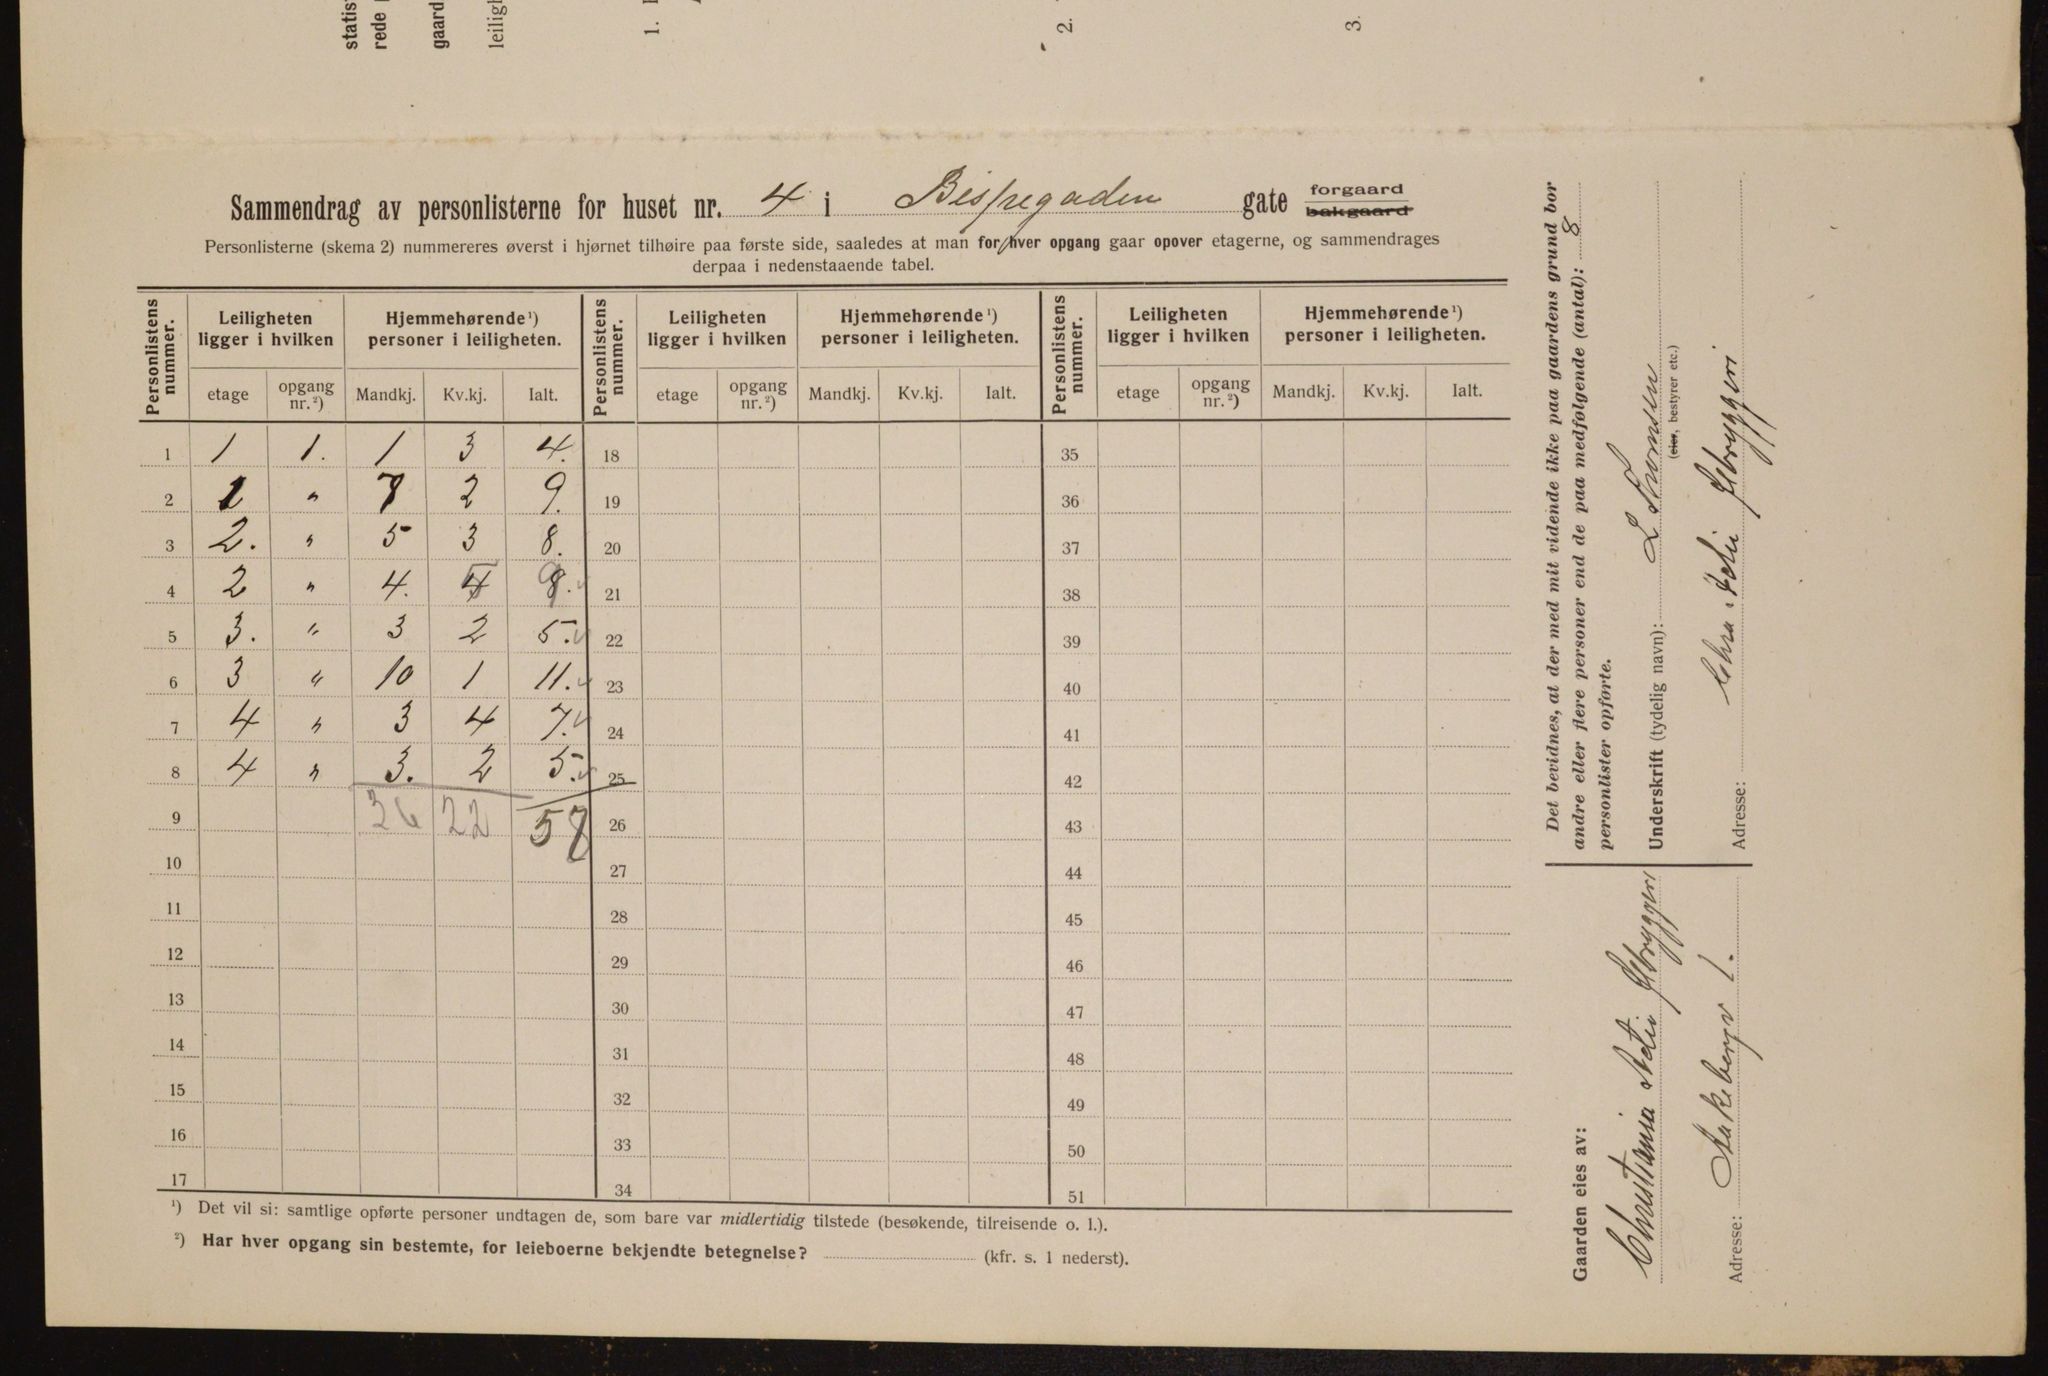 statis
rede
gaard
leiligh
1.
2.
3.
Sammendrag av personlisterne for huset nr. 4 i Bispegaden gate forgaard bakgaard
Personlisterne (skema 2) nummereres øverst i hjørnet tilhøire paa første side, saaledes at man for hver opgang gaar opover etagerne, og sammendrages
derpaa i nedenstaaende tabel.
Personlistens nummer. Leiligheten ligger i hvilken Hjemmehørende ¹) personer i leiligheten. Personlistens nummer. Leiligheten ligger i hvilken Hjemmehørende ¹) personer i leiligheten. Personlistens nummer. Leiligheten ligger i hvilken Hjemmehørende ¹) personer i leiligheten.
etage opgang nr. ²) Mandkj. Kv.kj. Ialt. etage opgang nr. ²) Mandkj. Kv.kj. Ialt. etage opgang nr. ²) Mandkj. Kv.kj. Ialt.
1 1 1. 1 3 4. 18 35
2 1 " 7 2 9. 19 36
3 2. " 5 3 8. 20 37
4 2 " 4. 4 5 8. 9 21 38
5 3. " 3 2 5. 22 39
6 3 " 10 1 11. 23 40
7 4 " 3 4 7. 24 41
8 4 " 3. 2 5. 25 42
9 36 22 58 26 43
10 27 44
11 28 45
12 29 46
13 30 47
14 31 48
15 32 49
16 33 50
17 34 51
¹) Det vil si: samtlige opførte personer undtagen de, som bare var midlertidig tilstede (besøkende, tilreisende o. l.).
²) Har hver opgang sin bestemte, for leieboerne bekjendte betegnelse? (kfr. s. 1 nederst).
Det bevidnes, at der med mit vidende ikke paa gaardens grund bor
andre eller flere personer end de paa medfølgende (antal): 8
personlister opførte.
Underskrift (tydelig navn): L Thomsen
(eier, bestyrer etc.)
Adresse: Chra Aktie Ølbryggeri
Gaarden eies av:
Christiania Aktie Ølbryggeri
Adresse: Aakebergv 1.